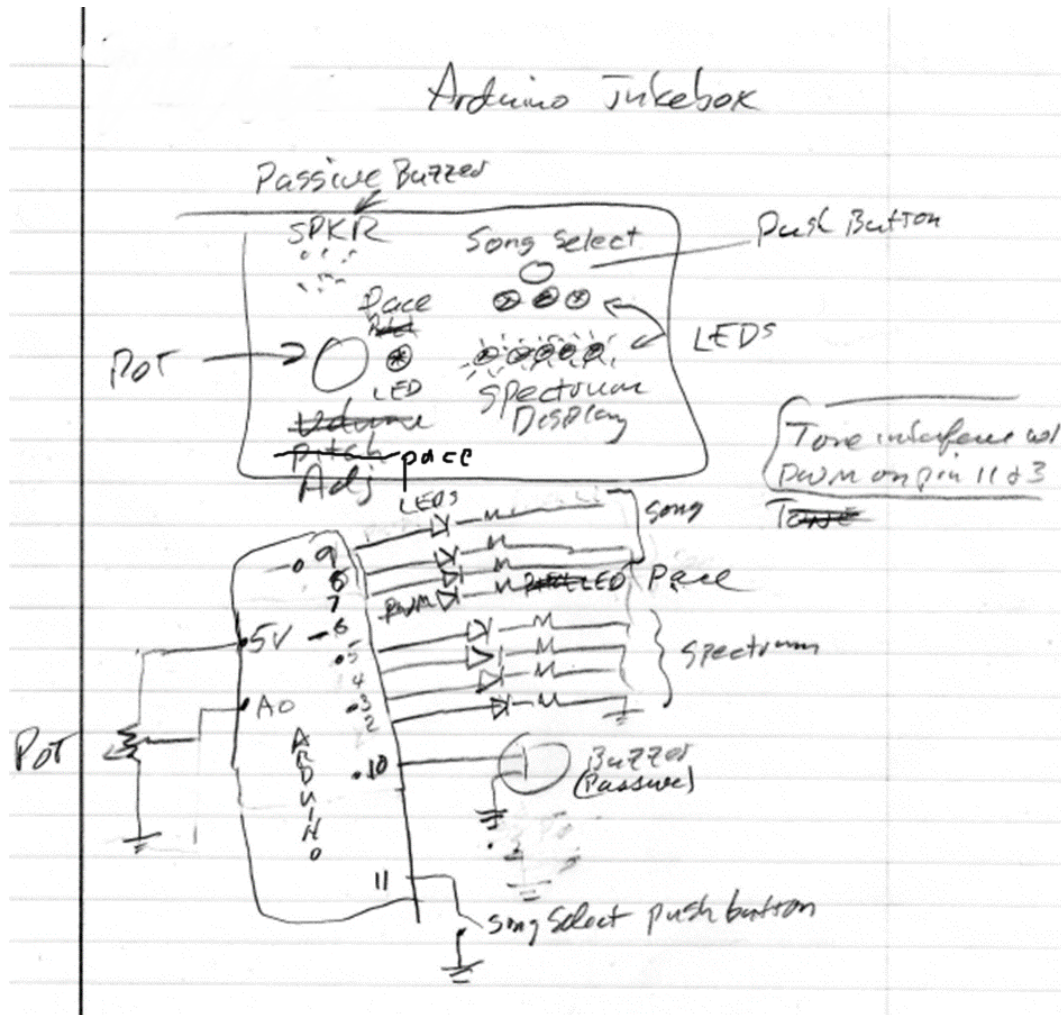 Arduino Jukebox
Passive Buzzer
SPKR
Song Select
Push Button
Pace
LEDs
POT
LED
Spectrum
Display
Volume
Pitch pace
Adj
Tone interfere w/
PWM on pin 11 & 3
Tone
LEDs
Song
9
8
7
PWM
LED Pace
6
5V
5
Spectrum
4
A0
3
2
POT
ARDUINO
10
Buzzer
(Passive)
11
Song Select push button